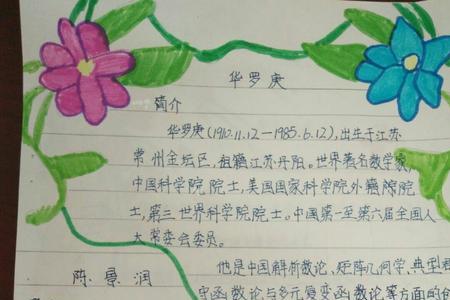 华罗庚
简介
华罗庚(1910.11.12—1985.6.12),出生于江苏
常州金坛区,祖籍江苏丹阳。世界著名数学家,
中国科学院院士,美国国家科学院外籍院院
士,第三世界科学院院士。中国第一至第六届全国人
大常委会委员。
他是中国解析数论、矩阵几何学、典型群
陈景润
守函数论与多元复变函数论等方面的创